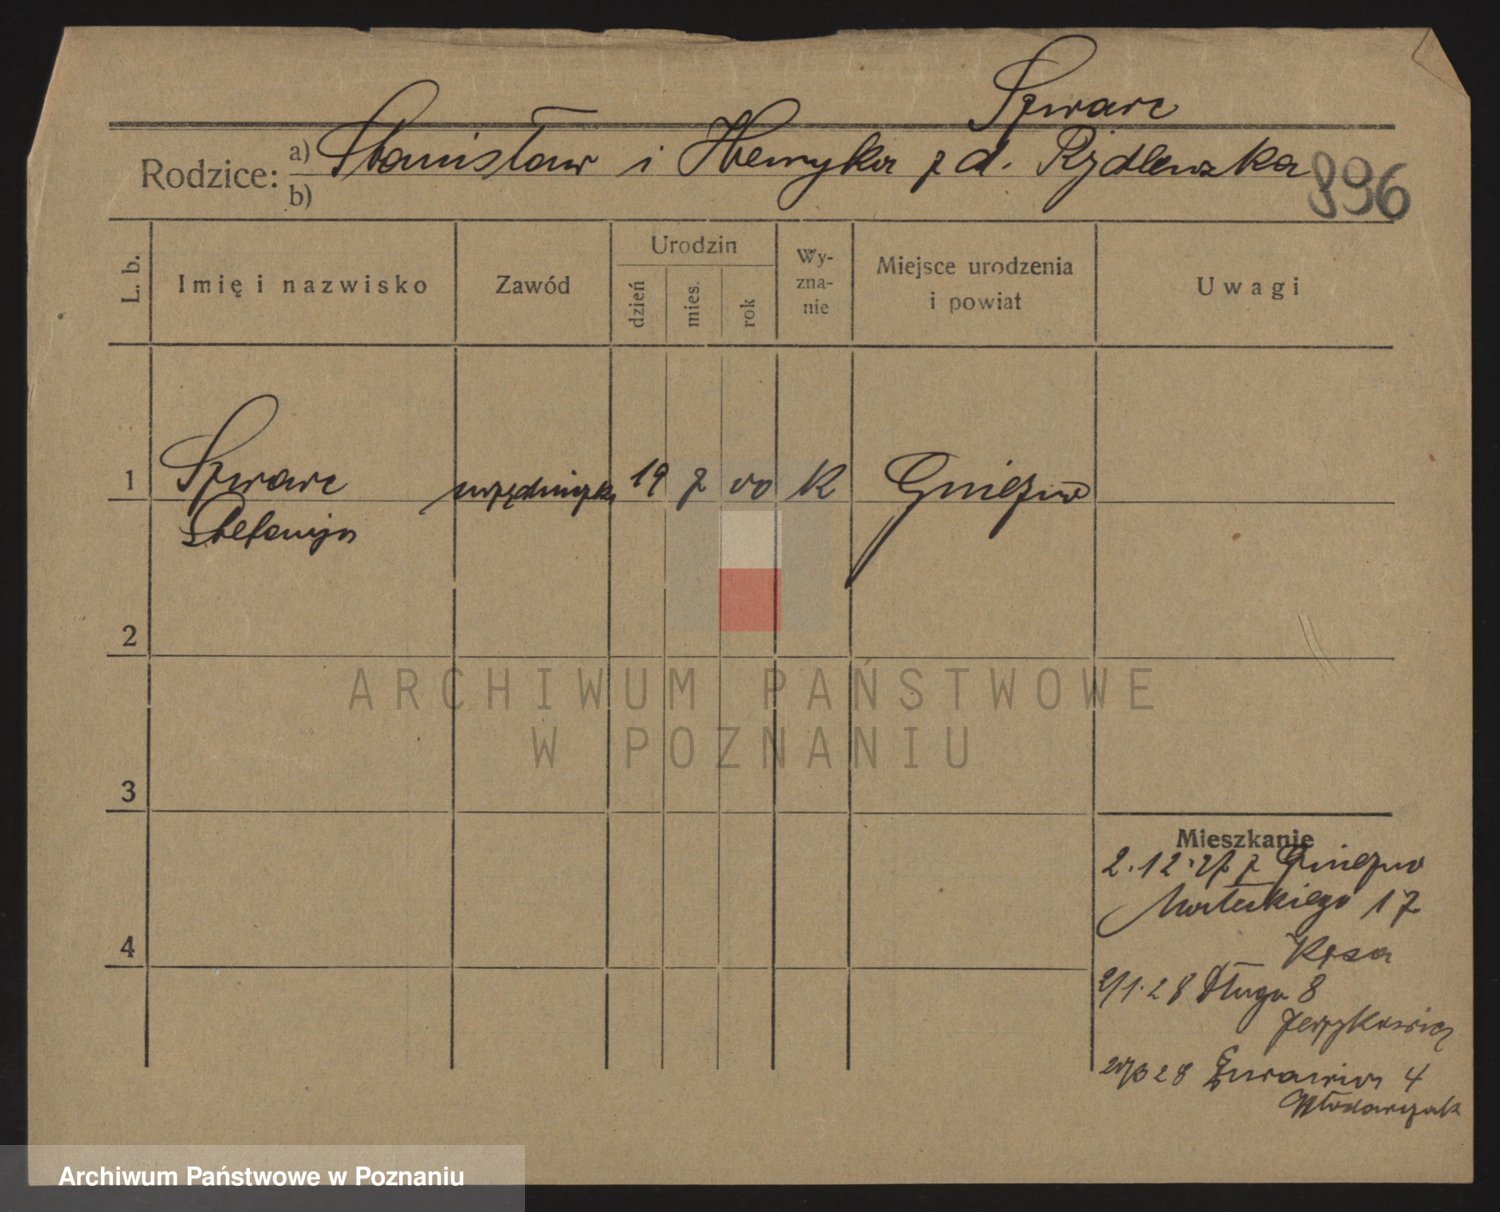 Szwarc
Rodzice: a) Stanisław i Henryka z d. Rydlewska
b)
896
L. b.
Imię i nazwisko
Zawód
Urodzin
dzień
mies.
rok
Wy-
zna-
nie
Miejsce urodzenia
i powiat
Uwagi
1 Szwarc urzędniczka 19 7 00 K Gniezno
Stefanja
2
3
4
Mieszkanie
2.12.27 z Gniezno
17
Kęsa
2/1.28 Długa 8
Jerzykiewicz
28 Żurawia 4
Włodarczak
ARCHIWUM PAŃSTWOWE
W POZNANIU
Archiwum Państwowe w Poznaniu